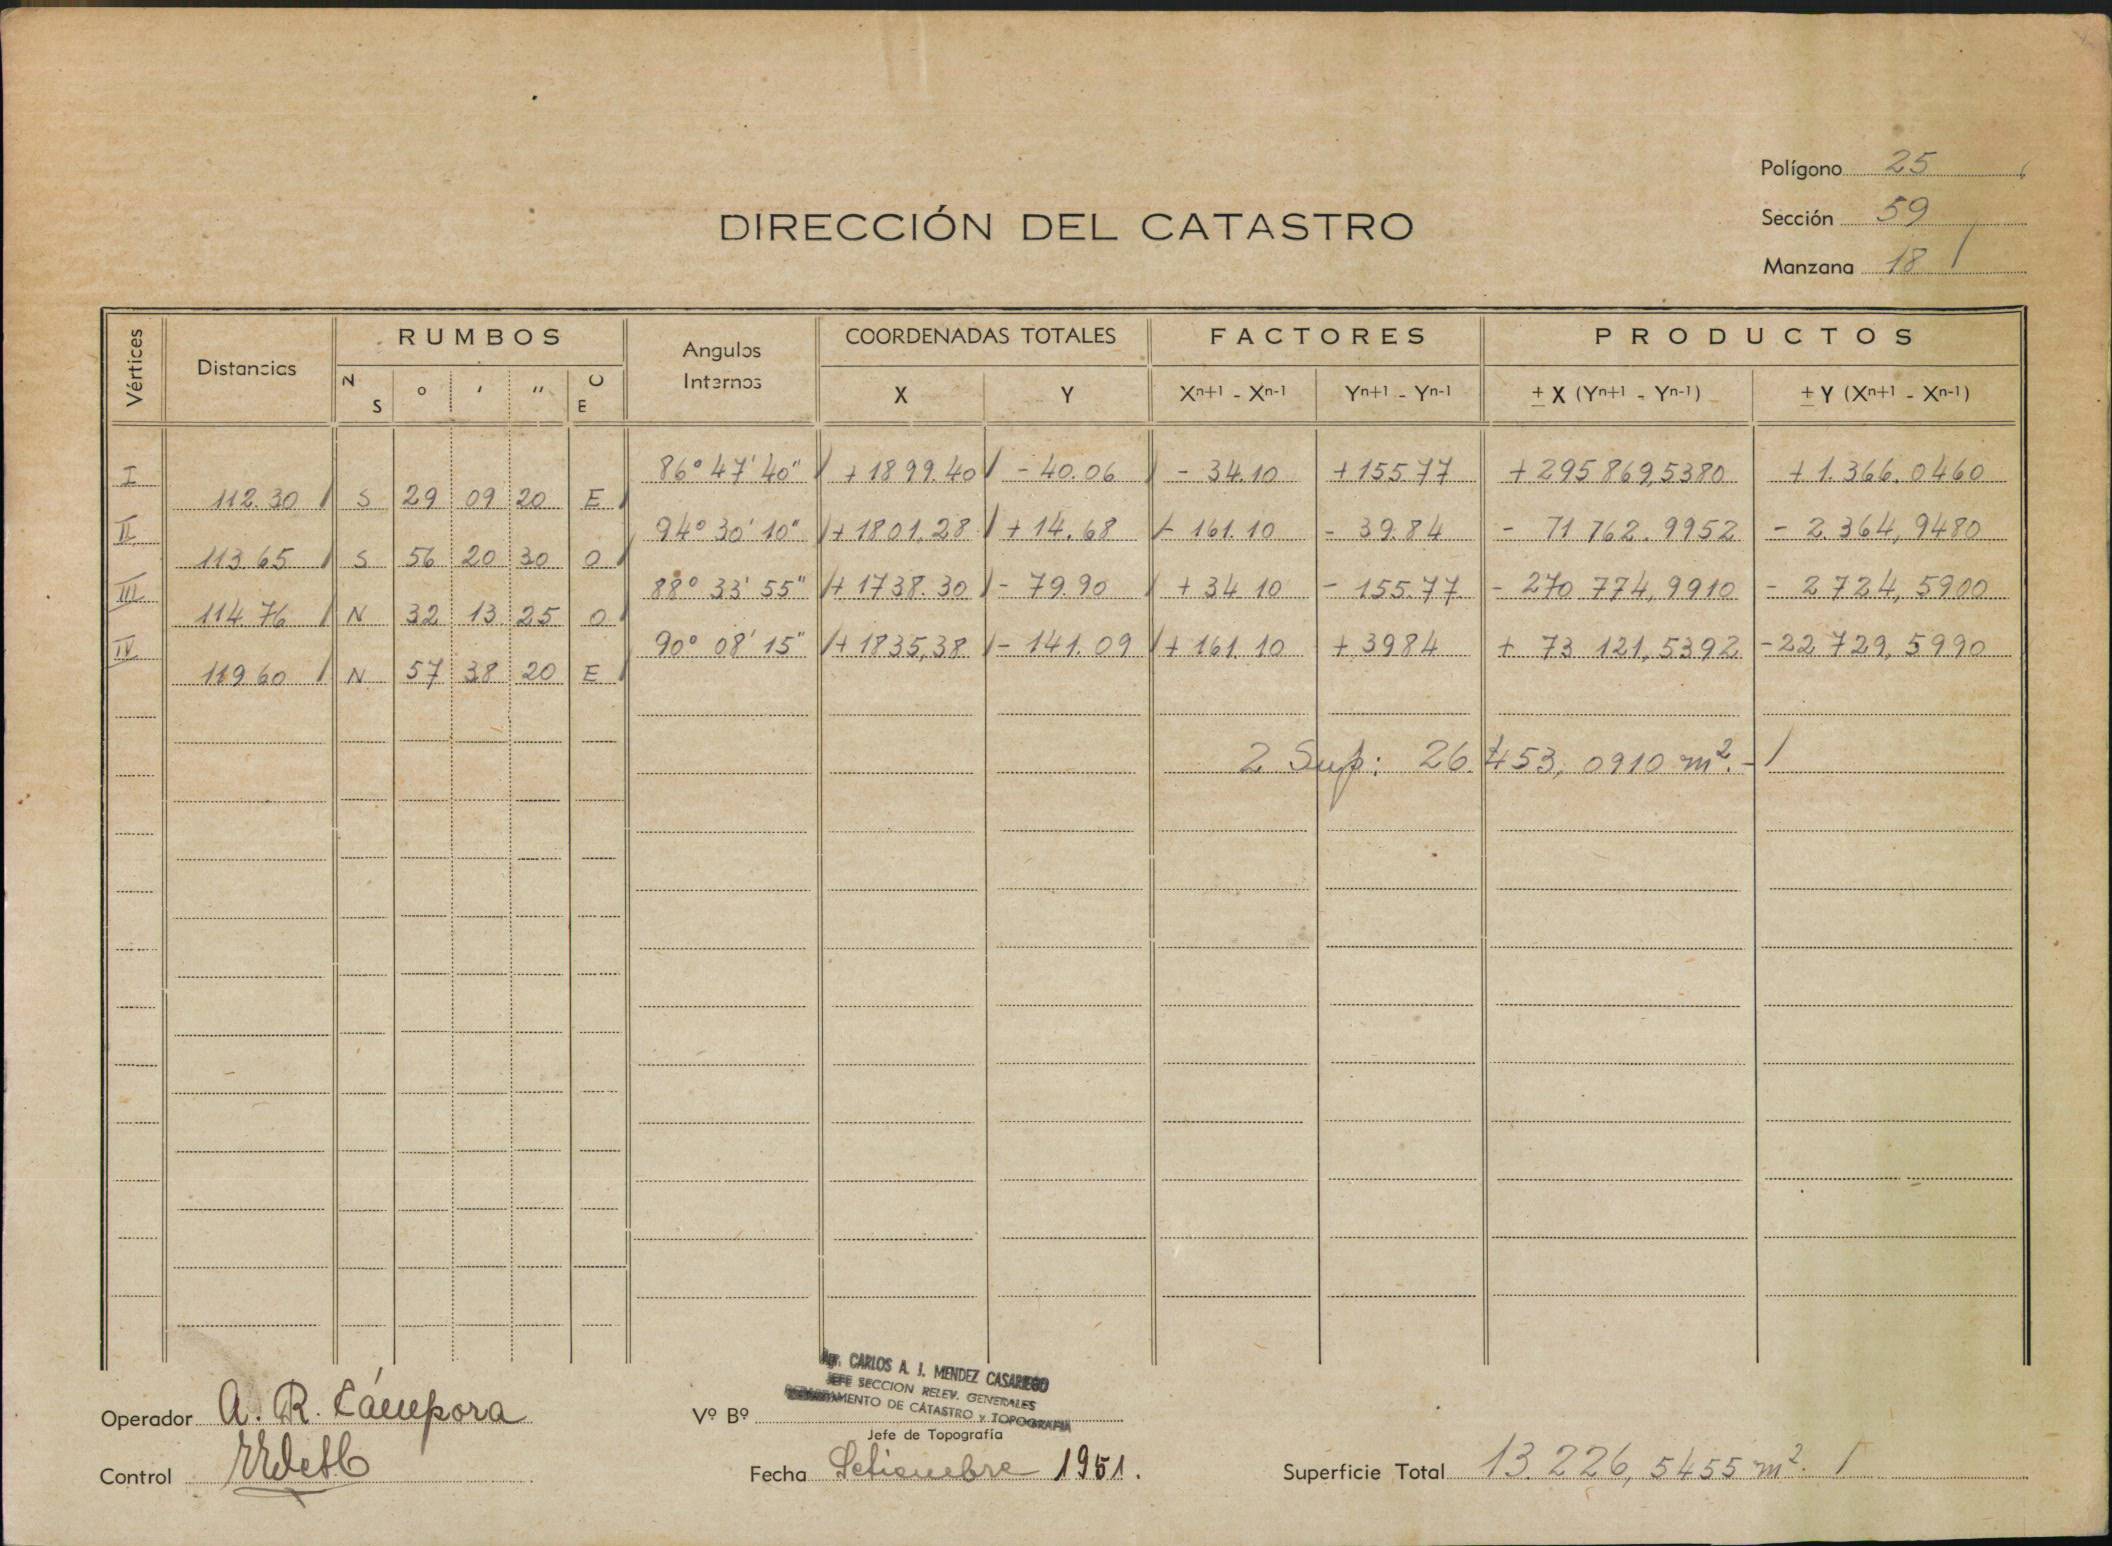 Polígono 25
Sección 59
Manzana 18
DIRECCIÓN DEL CATASTRO
Vértices Distancias RUMBOS Angulos Internos COORDENADAS TOTALES FACTORES PRODUCTOS
N S o ' " O E X Y Xn+1 - Xn-1 Yn+1 - Yn-1 ± X (Yn+1 - Yn-1) ± Y (Xn+1 - Xn-1)
I 86° 47' 40" + 1899.40 - 40.06 - 34.10 + 155.77 + 295 869,5380 + 1.366.0460
112.30 S 29 09 20 E
II 94° 30' 10" + 1801.28 + 14.68 - 161.10 - 39.84 - 71 762.9952 - 2.364,9480
113.65 S 56 20 30 O
III 88° 33' 55" + 1738.30 - 79.90 + 34 10 - 155.77 - 270 774,9910 - 2 724,5900
114.76 N 32 13 25 O
IV 90° 08' 15" + 1835,38 - 141.09 + 161.10 + 3984 + 73 121,5392 - 22 729,5990
119.60 N 57 38 20 E
2 Sup: 26.453,0910 m².-
Agr. CARLOS A. J. MENDEZ CASARIEGO
JEFE SECCION RELEV. GENERALES
DEPARTAMENTO DE CATASTRO y TOPOGRAFIA
Operador A. R. Cámpora Vº Bº
Jefe de Topografía
Control Fecha Setiembre 1951. Superficie Total 13.226,5455 m².